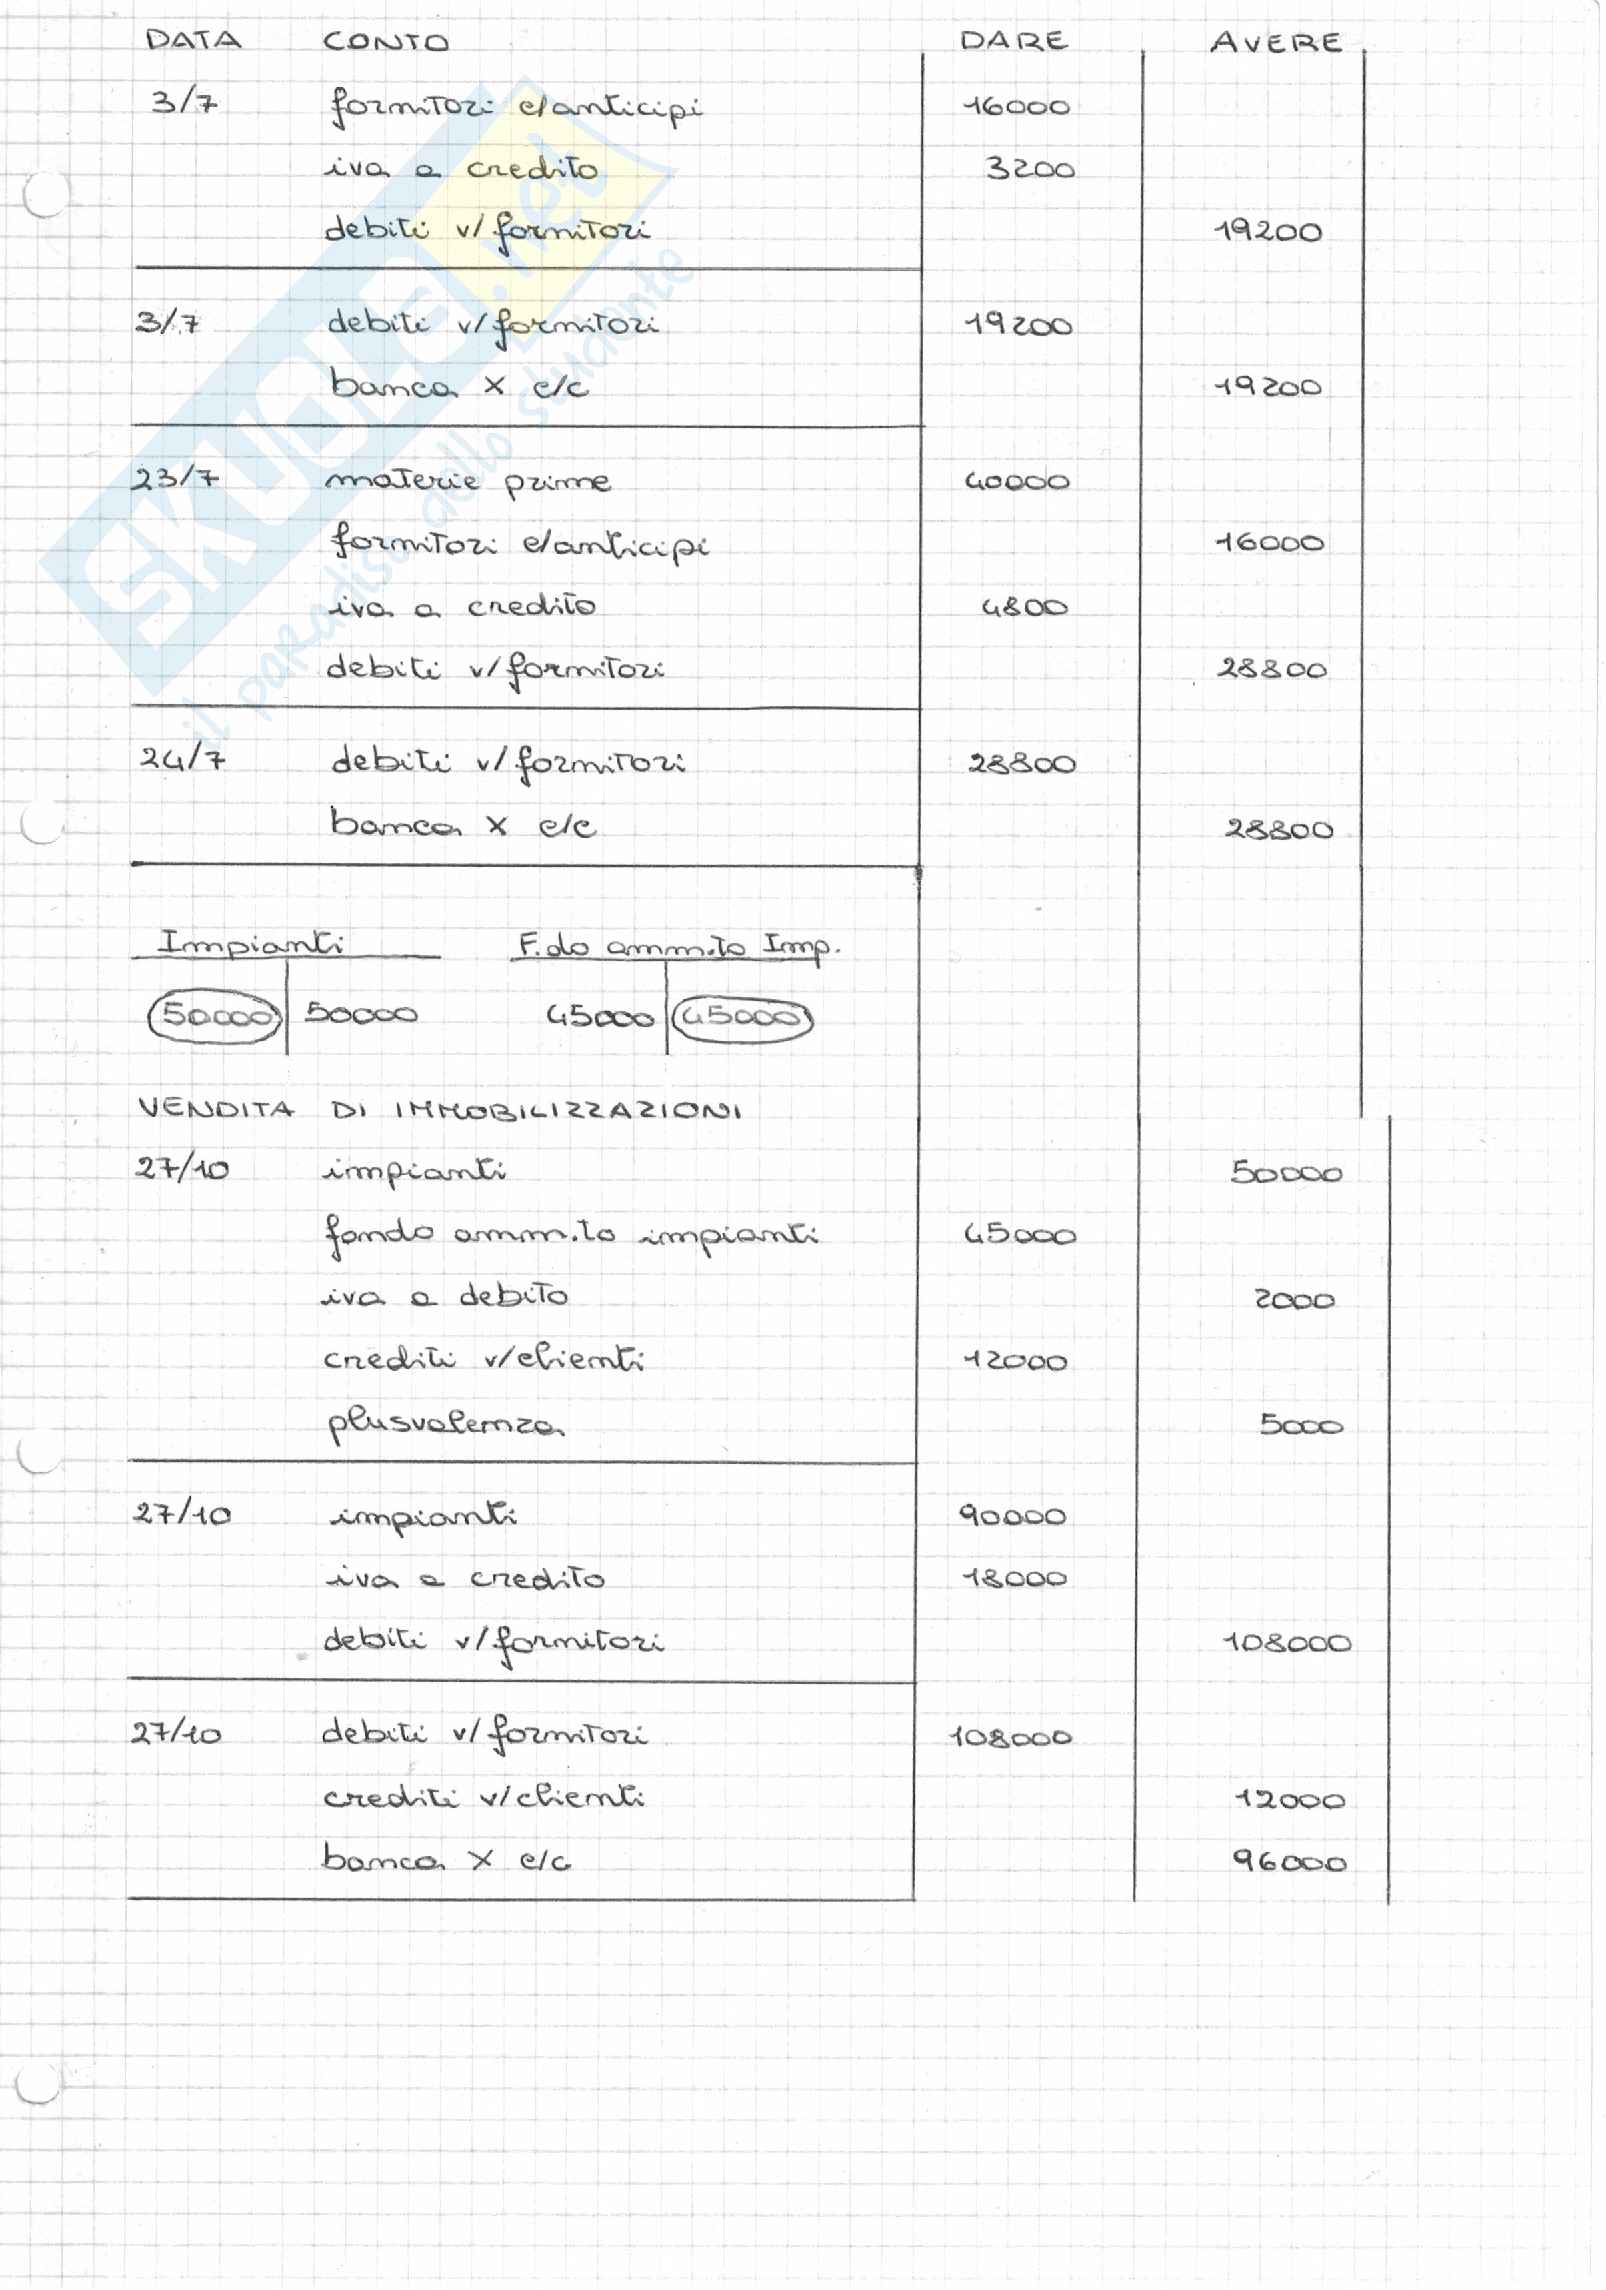 DATA CONTO DARE AVERE
3/7 fornitori c/anticipi 16000
iva a credito 3200
debiti v/fornitori 19200
3/7 debiti v/fornitori 19200
banca X c/c 19200
23/7 materie prime 40000
fornitori c/anticipi 16000
iva a credito 4800
debiti v/fornitori 28800
24/7 debiti v/fornitori 28800
banca X c/c 28800
Impianti F.do amm.to Imp.
50000 50000 45000 45000
VENDITA DI IMMOBILIZZAZIONI
27/10 impianti 50000
fondo amm.to impianti 45000
iva a debito 2000
crediti v/clienti 12000
plusvalenza 5000
27/10 impianti 90000
iva a credito 18000
debiti v/fornitori 108000
27/10 debiti v/fornitori 108000
crediti v/clienti 12000
banca X c/c 96000
SKUOLA.net
il paradiso dello studente